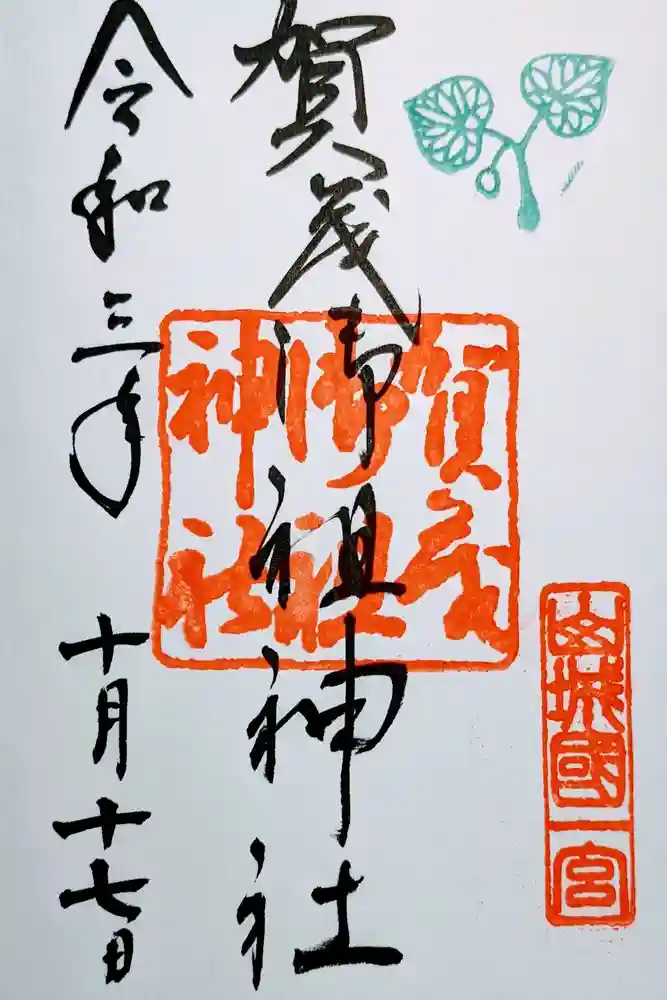 山城國一宮
賀茂御祖神社
賀茂
御祖
神社
令和三年 十月十七日